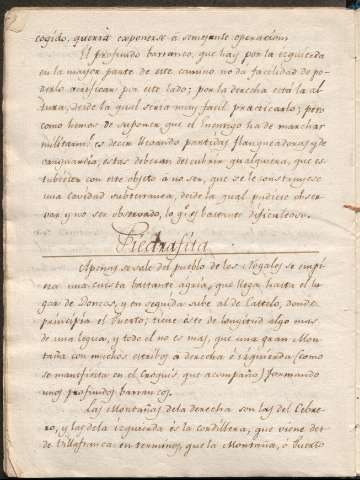 cogido, querrá exponerse a semejante operacion.
El profundo barranco, que hay por la izquierda
en la mayor parte de este camino no da facilidad de po-
derlo verificar por este lado; por la derecha está la al-
tura, desde la qual seria muy facil practicarlo; pero
como hemos de suponer que el enemigo ha de marchar
militarmte. es decir llevando partidas flanqueadoras y de
vanguardia; estas deberan descubrir qualquiera, que es-
tubiere con este objeto a no ser, que se le construyese
una cavidad subterranea, desde la qual pudiese obser-
var y no ser observado, lo qe. es bastante dificultoso.
Piedrafita
Apenas se sale del pueblo de los Nogales se empi-
eza una cuesta bastante agria, que llega hasta el lu-
gar de Doncos, y en seguida sube al de Castelo, donde
principia el Puerto; tiene este de longitud algo mas
de una legua, y todo el no es mas, que una gran Mon-
taña con muchos estribos a derecha é izquierda (como
se manifiesta en el Croquis que acompaño) formando
unos profundos barrancos.
Las Montañas de la derecha son las del Cebre-
ro, y las de la izquierda és la cordillera, que viene des-
de Villafranca en terminos, que la Montaña, ó Puerto